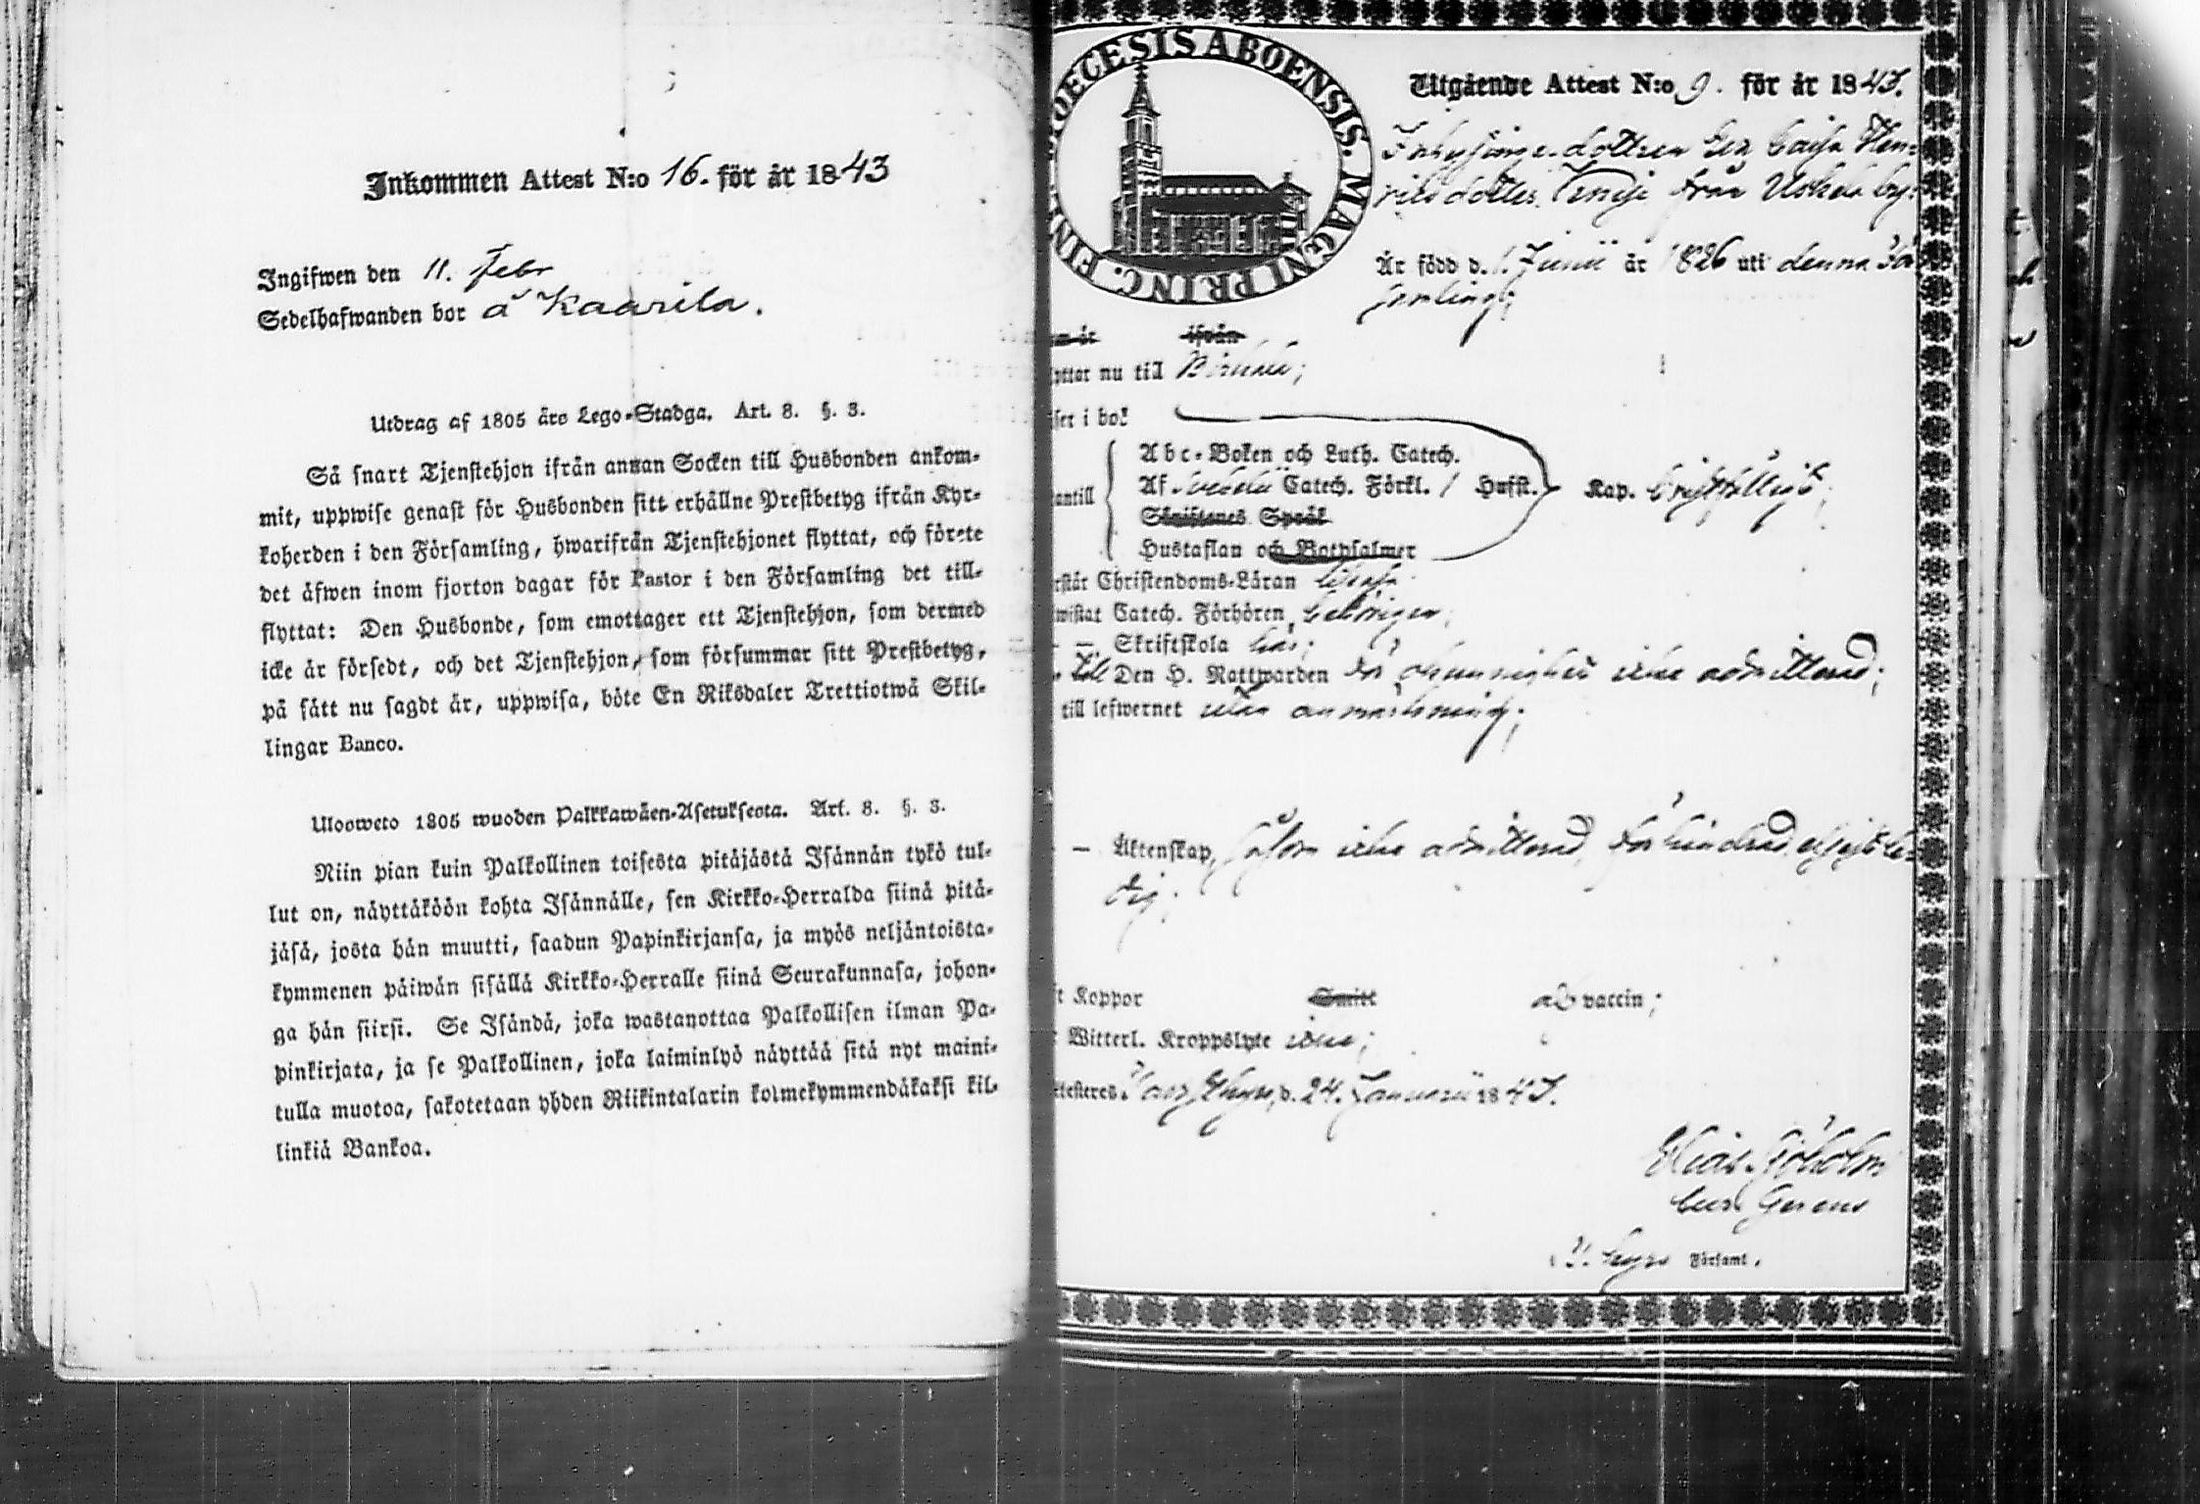 Inkommen Attest N:o 16. för år 1843
Ingifwen den 11. Febr
Sedelhafwanden bor å Kaarila.
Utdrag af 1805 års Lego-Stadga. Art. 8. §. 3.
Så snart Tjenstehjon ifrån annan Socken till Husbonden ankom-
mit, uppwise genast för Husbonden sitt erhållne Prestbetyg ifrån Kyr-
koherden i den Församling, hwarifrån Tjenstehjonet flyttat, och förete
det äfwen inom fjorton dagar för Pastor i den Församling det till-
flyttat: Den Husbonde, som emottager ett Tjenstehjon, som dermed
icke är försedt, och det Tjenstehjon, som försummar sitt Prestbetyg,
på sätt nu sagdt är, uppwisa, böte En Riksdaler Trettiotwå Skil-
lingar Banco.
Ulosweto 1805 wuoden Palkkawäen-Asetuksesta. Art. 8. §. 3.
Niin pian kuin Palkollinen toisesta pitäjästä Isännän tykö tul-
lut on, näyttäköön kohta Isännälle, sen Kirkko-Herralda siinä pitä-
jäsä, josta hän muutti, saadun Papinkirjansa, ja myös neljäntoista-
kymmenen päiwän sisällä Kirkko-Herralle siinä Seurakunnasa, johon-
ga hän siirsi. Se Isändä, joka wastanottaa Palkollisen ilman Pa-
pinkirjata, ja se Palkollinen, joka laiminlyö näyttää sitä nyt maini-
tulla muotoa, sakotetaan yhden Riikintalarin kolmekymmendäkaksi kil-
linkiä Bankoa.
DIOECESIS ABOENSIS. MAGNI PRINC. FINL
Utgående Attest N:o 9. för år 1843.
dottren Caisa Hen-
rics dotter från Uskela by;
Är född d. 1. Junii år 1826 uti denna För
samling;
ifrån
nu till Birkala;
i bok
Abc-Boken och Luth. Catech.
Af Svebelii Catech. Förkl. / Husst. Kap.
Skriftenes Språk
Hustaflan och Botpsalmer
Christendoms-Läran
Catech. Förhören
— Skriftskola
till Den H. Nattwarden för okunnighet icke admitterad;
till lefwernet utan anmärkning;
— Äktenskap, såsom icke admitterad, förhindrad, eljest le-
dig;
Koppor Smitt vaccin;
Witterl. Kroppslyte
d. 24. Januarii 1843.
Elias Sjöholm
Cur. Gerens
i Församl.